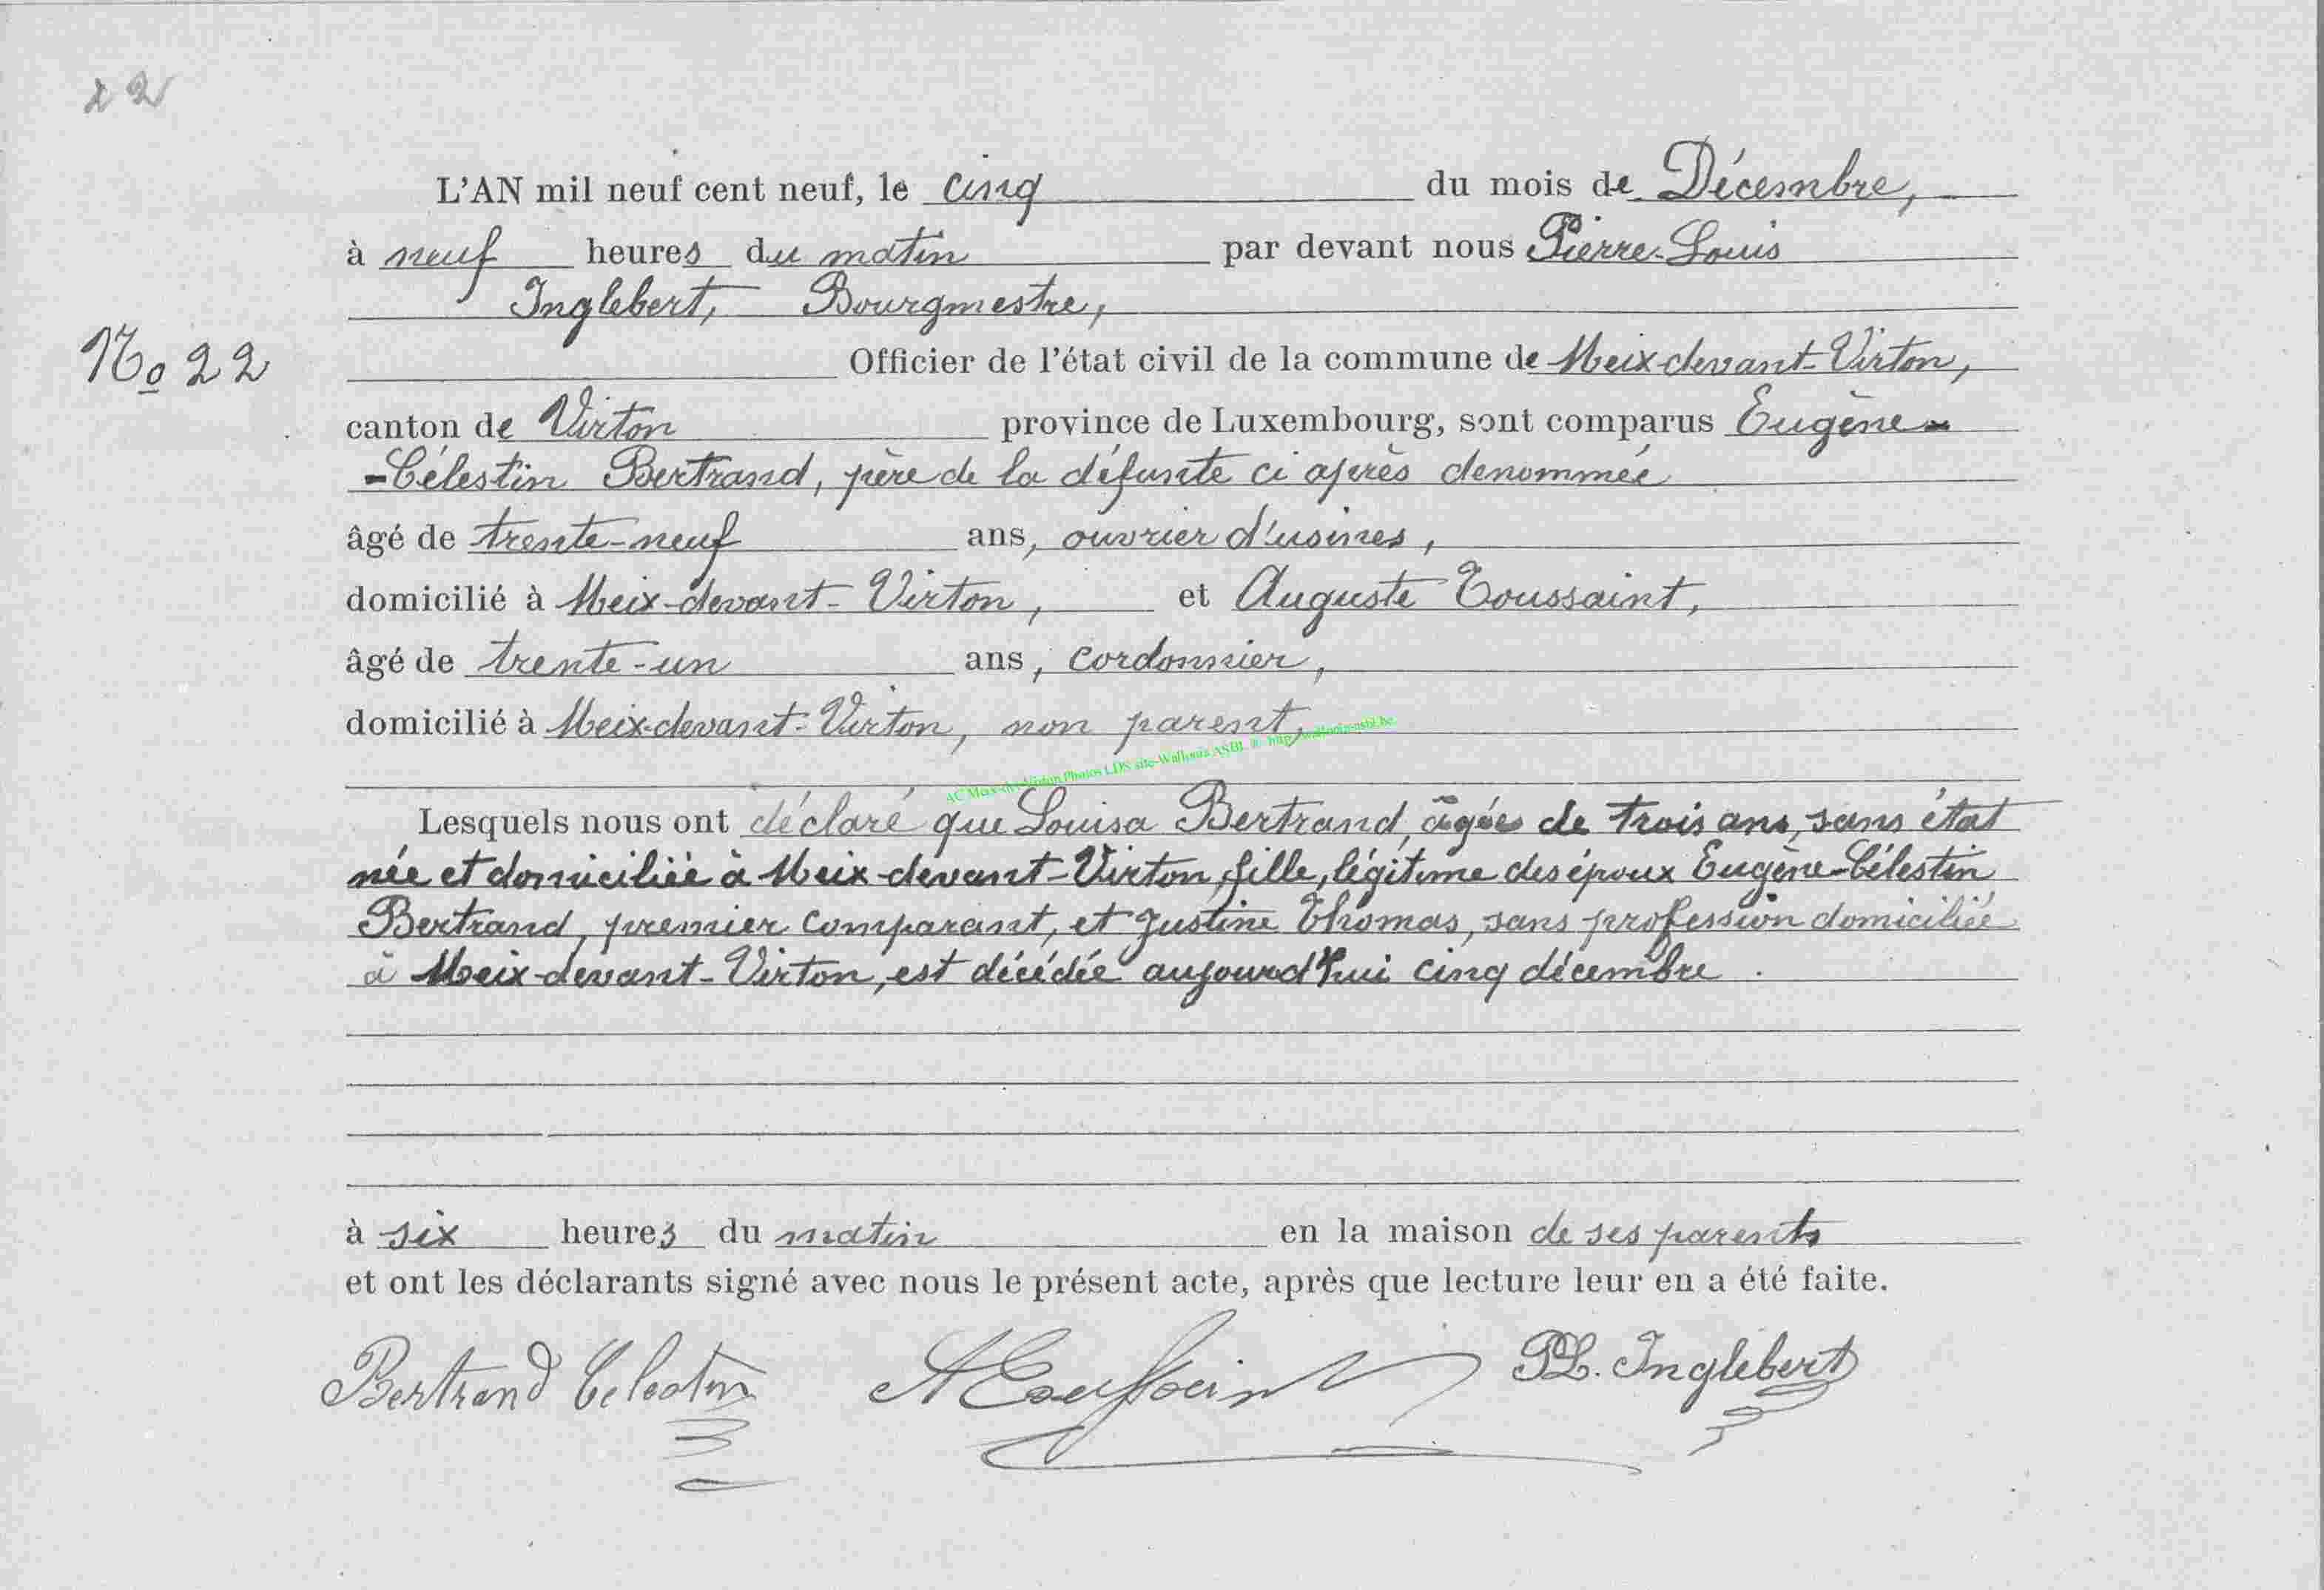 22
L'AN mil neuf cent neuf, le cinq du mois de Décembre,
à neuf heures du matin par devant nous Pierre-Louis
Inglebert, Bourgmestre,
No 22
Officier de l'état civil de la commune de Meix-devant-Virton,
canton de Virton province de Luxembourg, sont comparus Eugène-
-Célestin Bertrand, père de la défunte ci après denommée
âgé de trente-neuf ans, ouvrier d'usines,
domicilié à Meix-devant-Virton, et Auguste Toussaint,
âgé de trente-un ans, cordonnier,
domicilié à Meix-devant-Virton, non parent,
AC Meix-dvt-Virton Photos LDS site-Wallonia ASBL
Lesquels nous ont déclaré que Louisa Bertrand, âgée de trois ans, sans état
née et domiciliée à Meix-devant-Virton, fille, légitime des époux Eugène-Célestin
Bertrand, premier comparant, et Justine Thomas, sans profession domiciliée
à Meix-devant-Virton, est décédée aujourd'hui cinq décembre .
à six heures du matin en la maison de ses parents
et ont les déclarants signé avec nous le présent acte, après que lecture leur en a été faite.
Bertrand Celestin A Toussaint PL. Inglebert